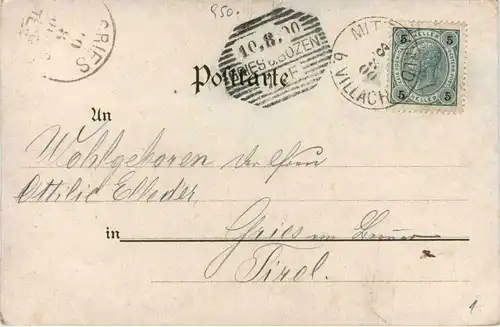 950.
GRIES
10.8.00
GRIES b. BOZEN
MITT
VILLACH 9
5 5
HELLER
5 5
Postkarte
An
Wohlgeboren
Ottilie Elleder,
in Gries am
Tirol.